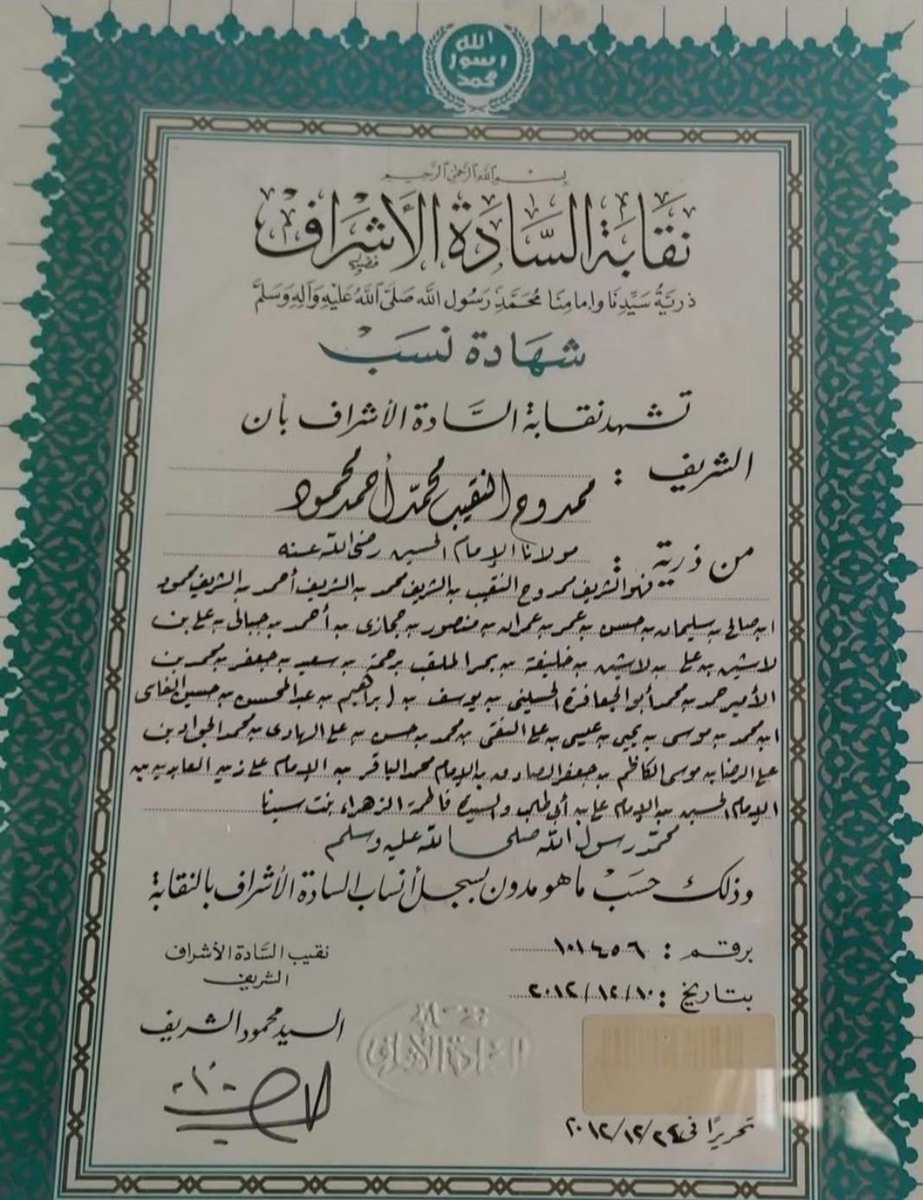 الله
رسول
محمد
بسم الله الرحمن الرحيم
نقابة السادة الأشراف
ذرية سيدنا وإمامنا محمد رسول الله صلى الله عليه وآله وسلم
شهادة نسب
تشهد نقابة السادة الأشراف بأن
الشريف : ممدوح النقيب محمد أحمد محمود
من ذرية : مولانا الإمام الحسين رضى الله عنه
فهو الشريف ممدوح النقيب بن الشريف محمد بن الشريف أحمد بن الشريف محمود
ابن صالح بن سليمان بن حسن بن عمر بن عمران بن منصور بن حجازى بن أحمد بن جبالى بن على بن
لاشين بن على بن لاشين بن خليفة بن بحر الملقب برحمة بن سعيد بن جعفر بن محمد بن
الأمير حمد بن محمد أبو الجعافرة الحسينى بن يوسف بن إبراهيم بن عبد المحسن بن حسين الفاسى
ابن محمد بن موسى بن يحيى بن عيسى بن على التقى بن محمد بن حسن بن على الهادى بن محمد الجواد بن
على الرضا بن موسى الكاظم بن جعفر الصادق بن الإمام محمد الباقر بن الإمام على زين العابدين بن
الإمام الحسين بن الإمام على بن أبى طالب والسيدة فاطمة الزهراء بنت سيدنا
محمد رسول الله صلى الله عليه وسلم
وذلك حسب ما هو مدون بسجل أنساب السادة الأشراف بالنقابة
برقم : ١٠١٤٥٦
بتاريخ : ٢٠١٢/١٢/١٠
نقيب السادة الأشراف
الشريف
السيد محمود الشريف
تحريرا فى ٢٠١٢/١٢/٢٤